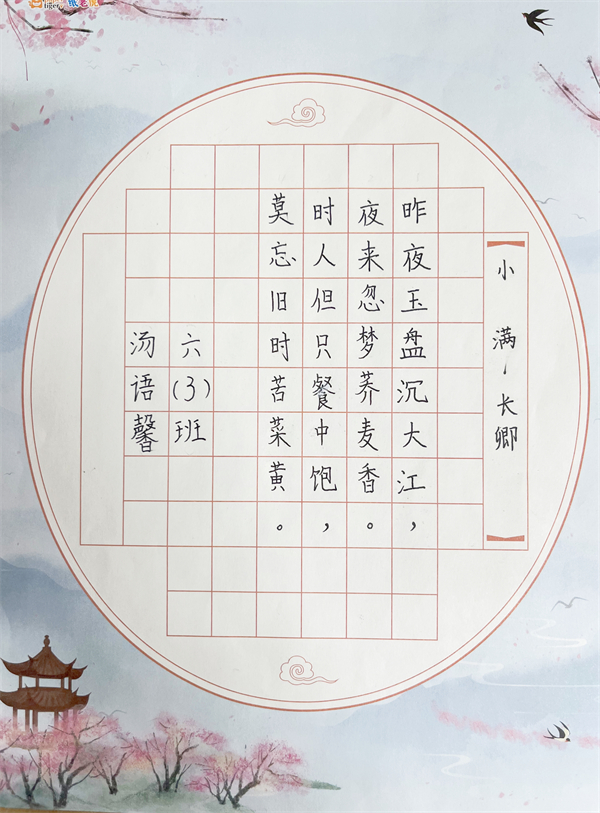 小满、长卿
昨夜玉盘沉大江，
夜来忽梦荞麦香。
时人但只餐中饱，
莫忘旧时苦菜黄。
六(3)班
汤语馨